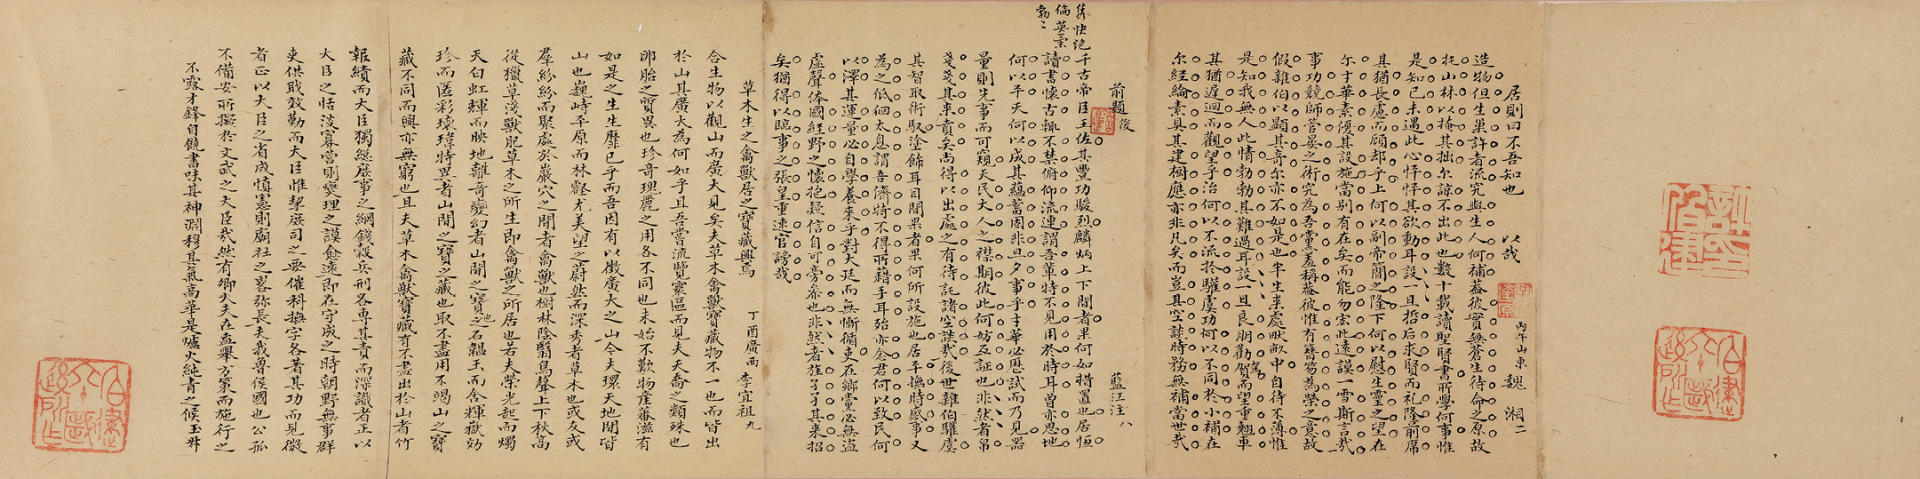 居則曰不吾知也 以哉 丙午山東 魏 湘二
造物但生巢許者流究與生人何補蓋彼實無蒼生待命之原故
托山林以掩其拙尔諒不出此也數十載讀聖賢書所學何事惟
是知己未遇此心怦怦其欲動耳設一旦哲后求賢而礼隆前席
其猶長慮而顧却乎上何以副帝簡之隆下何以慰生靈之望在
尔才華素優其設施當别有在矣而能勿宏此遠謨一雪斯言哉
事功競師管晏之術究為吾黨羞稱葢彼惟有簪笏為榮之意故
假離伯以顯其奇尔亦不如是也半生耒處畎畝中自待不薄惟
是知我無人此情勃勃其難過耳設一旦良朋勸駕而望重翹車
其猶遲迴而觀望乎治何以不流於驩虞功何以不同於小補在
尔經綸素具其建樹應亦非凡矣而豈其空談時務無補當世哉
前題 後 藍江注八
雋快絶
倫英氣
勃〻
千古帝臣王佐其豐功駿烈麟炳上下間者果何如措置也居恒
讀書懷古輒不禁俯仰流連謂吾輩特不見用於時耳曽亦思地
何以平天何以成其蘊蓄固非旦夕事乎才華必歷試而乃見器
量則先事而可窺天民大人之襟期彼此何妨互証也非然者帛
戔戔其来賁矣尚得以出處之有待託諸空談哉後世雜伯驩虞
其智取術馭塗飾耳目間果者果何所設施也居平撫時感事又
為之低個太息謂吾儕特不得所藉手耳殆亦念君何以致民何
以澤其運量必自學養來乎對大廷而無慚循吏在鄉黨必無盗
虚聲体國經野之懷抱疑信自可旁叅也非然者旌孑孑其来招
矣猶得以臨事之張皇重速官謗哉
草木生之禽獸居之寶藏興焉 丁酉廣西 李宜祖九
合生物以觀山而廣大見矣夫草木禽獸寶藏物不一也而皆出
於山其廣大為何如乎且吾嘗流覽寰區而見夫夭喬之類殊也
卵胎之質異也珍奇瑰麗之用各不同也未始不歎物産蕃滋有
如是之生生靡已乎而吾因有以徵廣大之山今夫環天地間皆
山也巍峙乎原而林壑尤美望之蔚然而深秀者草木也或友或
羣紛紛而聚處於巖穴之間者禽獸也樹林陰翳鳥聲上下秋高
從獵草淺獸肥草木之所生即禽獸之所居也若夫榮光起而燭
天白虹輝而映地離奇變幻者山間之寶也石韞玉而含輝嶽効
珍而匿彩瓌瑋特異者山間之寶之藏也取不盡用不竭山之寶
藏不同而興亦無窮也且夫草木禽獸寶藏有不盡出於山者竹
報績而大臣獨總厥事之綱錢穀兵刑各専其責而深識者正以
大臣之恬淡寡营則燮理之謨愈遠即在守成之時朝野無事群
吏供職效勤而大臣惟挈厥司之要催科撫字各著其功而見微
者正以大臣之省成慎憲則廟社之畧弥長夫我魯侯國也公孤
不備安所擬於文武之大臣哉然有卿大夫在盍舉方策而施行之
不露才鋒自饒書味其神淵穆其氣高華是爐火純青之候玉舛